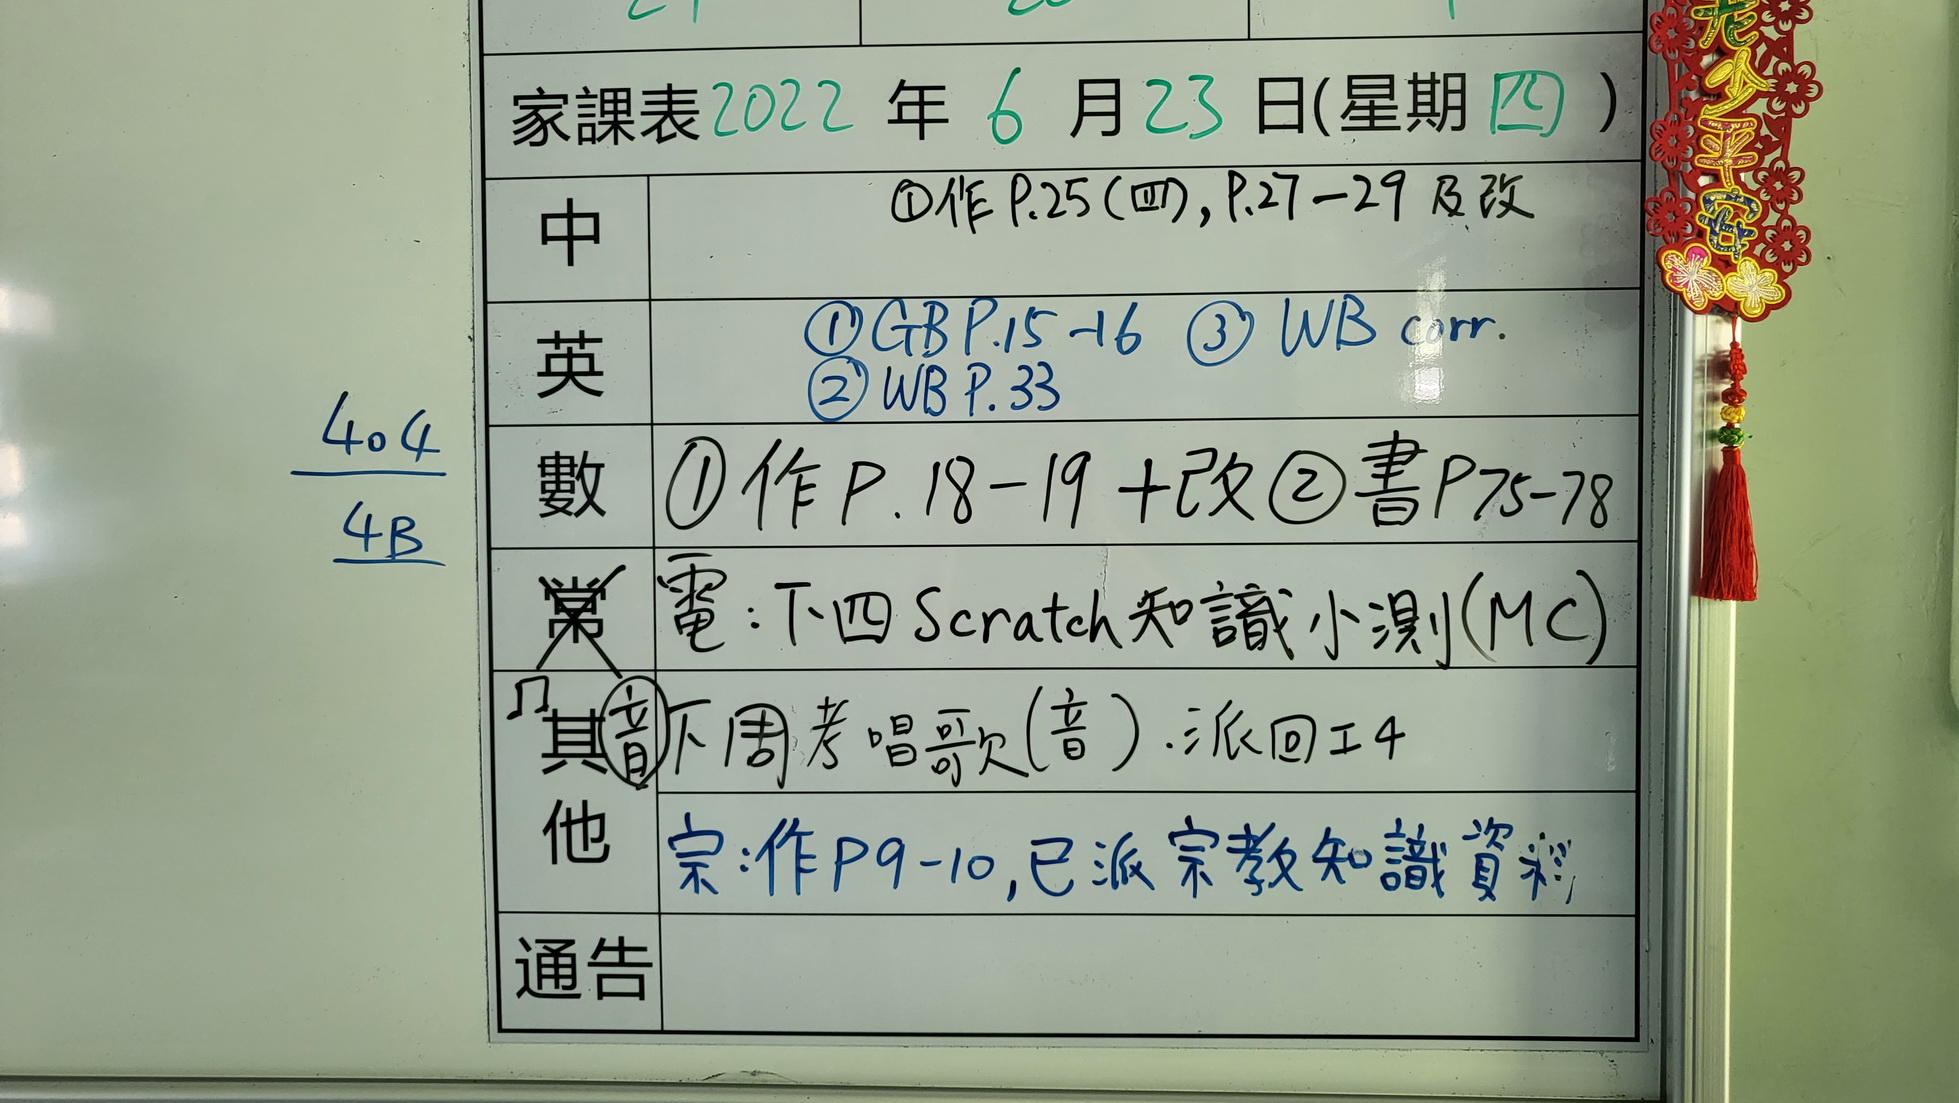 家課表2022年6月23日(星期四)
中
①作P.25(四), P.27-29及改
英
①GB P.15-16 ③ WB corr.
②WB P.33
404
4B
數
①作P.18-19+改②書P75-78
常
電:下四Scratch知識小測(MC)
其他
音
下周考唱歌(音).派回工4
宗:作P9-10,已派宗教知識資料
通告
老少平安